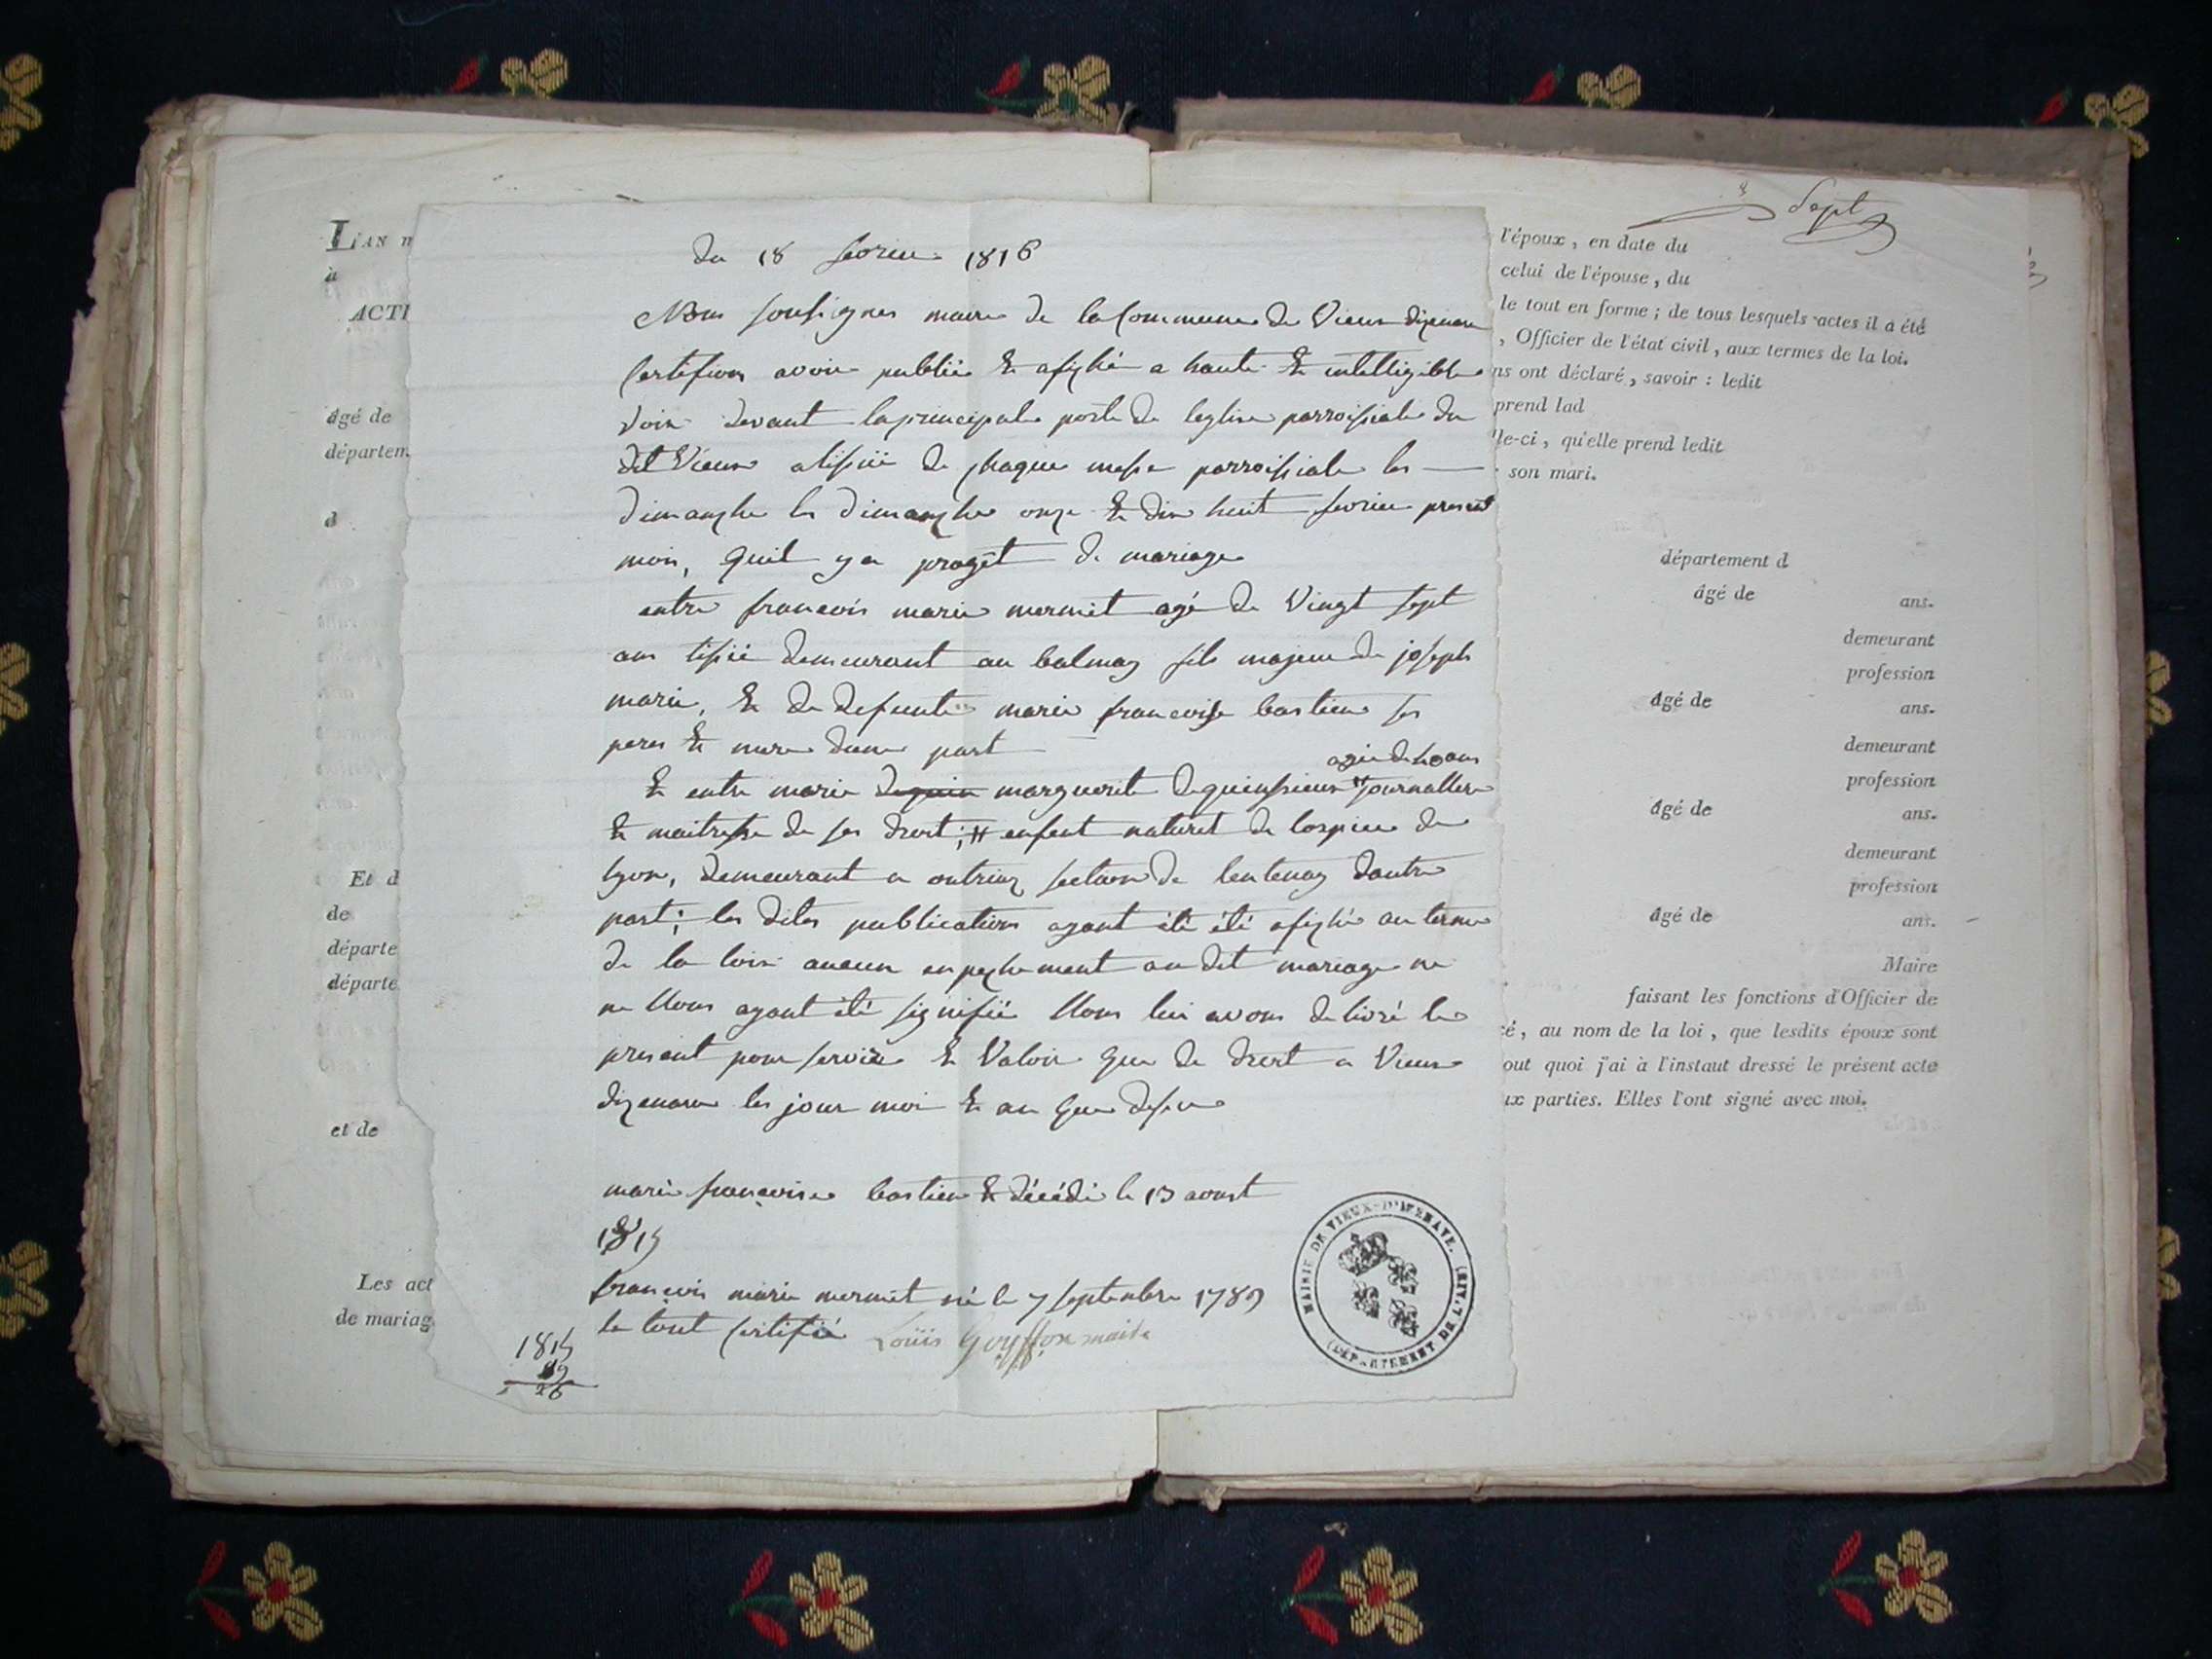 Sept
L'AN
à
ACT
âgé de
départem
d
Et d
de
départe
départe
et de
Les act
de mariag
du 18 fevrier 1816
Nous sousignes maire de la Commune de Vieux dizenave
Certifions avoir publié & afiché a haute & intelligible
voix devant la principale porte de leglise parroissiale du
dit Vieux alissüe de chaque messe parroissiale les
dimanche les dimanche onze & dix huit fevrier present
mois, quil y a progêt de mariage
entre francois marie mermet agé de Vingt sept
ans tissié demeurant au balmay fils majeur de joseph
marie, & de defeunte marie francoise bastien ses
peres & mere dune part
agée de 40 ans
& entre marie marguerite dequinssieux journallere
& maitresse de ses droit; enfent naturel de lospice de
lyon, demeurant a outriaz section de lentenay dautre
part; les dites publications ayant été été afiché au terme
de la loix aucun enpechement au dit mariage ne
ne Nous ayant été signifié Nous lui avons delivré le
present pour servire & Valoir que de droit a Vieux
dizenave les jour moi & an que dessue
marie francoise bastien & décédé le 13 aoust
1815
francois marie mermet né le 7 septembre 1789
le tout certifié Loüis Goyffon maire
1815
89
26
MAIRIE DE VIEUX-D'IZENAVE.
(DÉPARTEMENT DE L'AIN)
l'époux, en date du
celui de l'épouse, du
le tout en forme; de tous lesquels actes il a été
, Officier de l'état civil, aux termes de la loi.
ns ont déclaré, savoir : ledit
prend lad
lle-ci, qu'elle prend ledit
son mari.
département d
âgé de ans.
demeurant
profession
âgé de ans.
demeurant
profession
âgé de ans.
demeurant
profession
âgé de ans.
Maire
faisant les fonctions d'Officier de
cé, au nom de la loi, que lesdits époux sont
out quoi j'ai à l'instaut dressé le présent acte
ux parties. Elles l'ont signé avec moi.